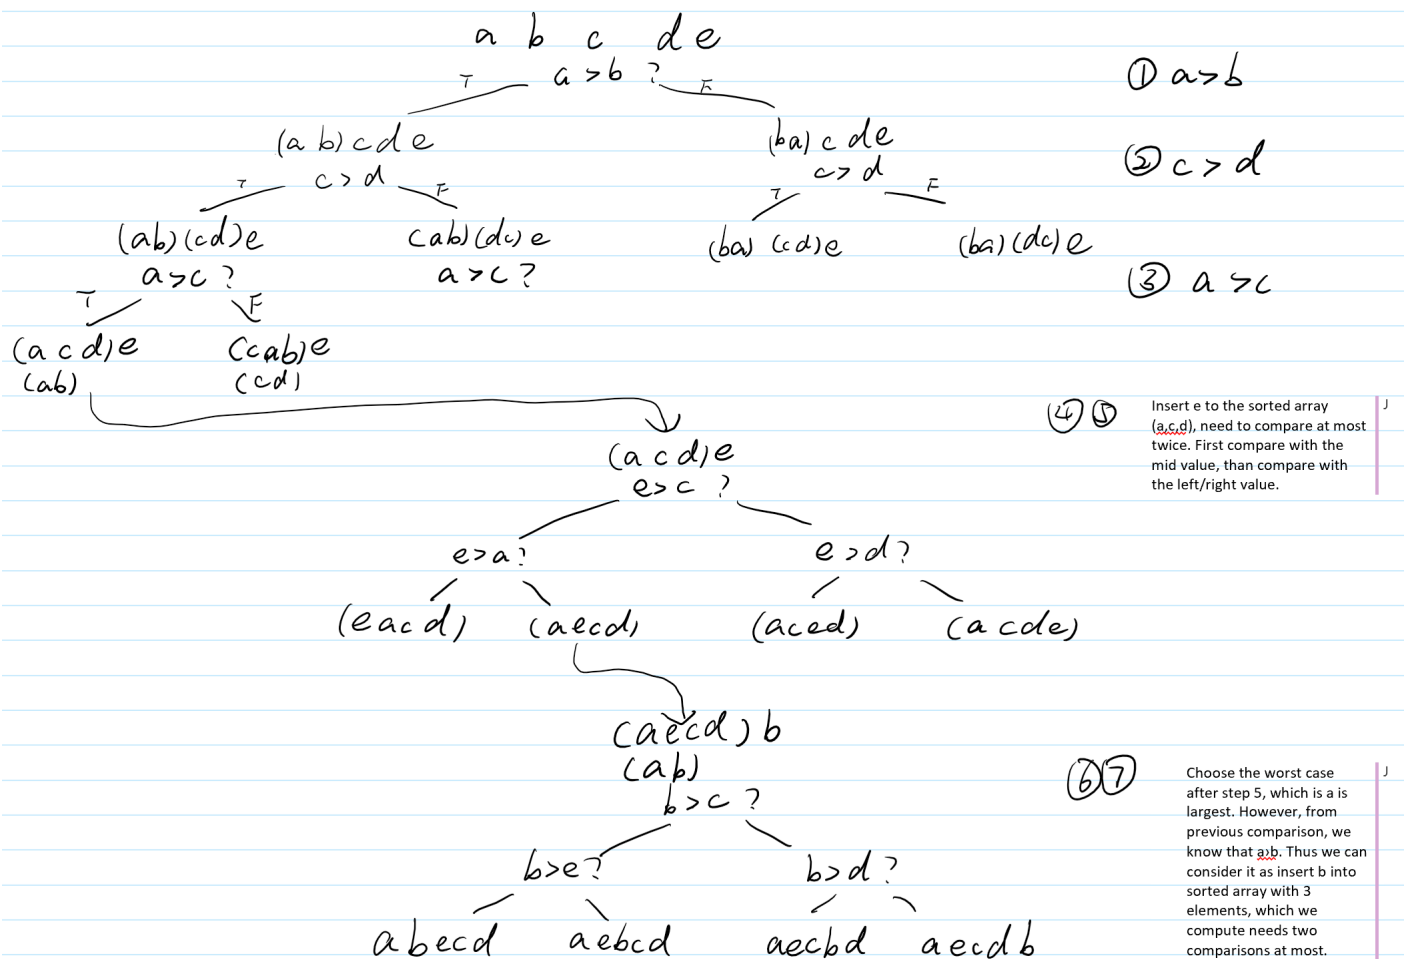 a b c d e
a > b ?
T F
① a > b
(a b) c d e
(ba) c d e
c > d
c > d
② c > d
T F
T F
(ab) (cd) e
(ab) (dc) e
(ba) (cd) e
(ba) (dc) e
a > c ?
a > c ?
③ a > c
T F
(a c d) e
(cab) e
(ab)
(cd)
④ ⑤
Insert e to the sorted array
(a,c,d), need to compare at most
twice. First compare with the
mid value, than compare with
the left/right value.
J
(a c d) e
e > c ?
e > a ?
e > d ?
(e a c d)
(a e c d)
(a c e d)
(a c d e)
(a e c d) b
(ab)
b > c ?
⑥ ⑦
Choose the worst case
after step 5, which is a is
largest. However, from
previous comparison, we
know that a>b. Thus we can
consider it as insert b into
sorted array with 3
elements, which we
compute needs two
comparisons at most.
J
b > e ?
b > d ?
a b e c d
a e b c d
a e c b d
a e c d b